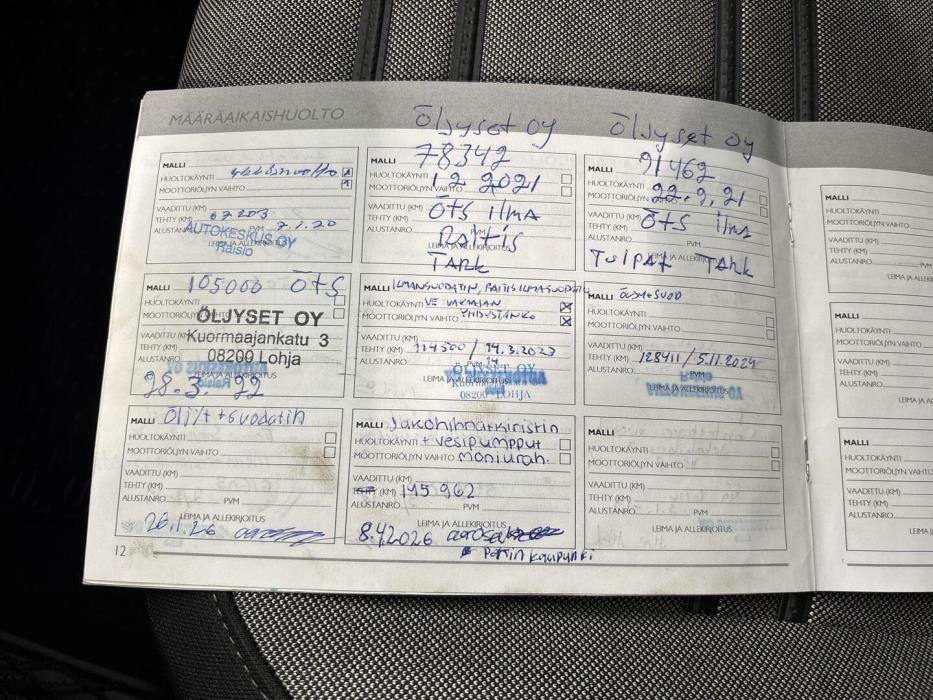 MÄÄRÄAIKAISHUOLTO
Öljyset oy
Öljyset oy
MALLI
HUOLTOKÄYNTI
MOOTTORIÖLJYN VAIHTO
VAADITTU (KM)
TEHTY (KM) 67203 PVM 7.1.20
ALUSTANRO
AUTOKESKUS OY
Raisio
LEIMA JA ALLEKIRJOITUS
MALLI 78342
HUOLTOKÄYNTI
MOOTTORIÖLJYN VAIHTO 1.2 2021
VAADITTU (KM)
TEHTY (KM) ÖtS ilma
ALUSTANRO PVM
Raitis
LEIMA JA ALLEKIRJOITUS
Tark
MALLI 91462
HUOLTOKÄYNTI
MOOTTORIÖLJYN VAIHTO 22.9.21
VAADITTU (KM)
TEHTY (KM) ÖtS ilma
ALUSTANRO PVM
LEIMA JA ALLEKIRJOITUS
Tulpat Tark
MALLI 105000 ÖtS
HUOLTOKÄYNTI
MOOTTORIÖLJYN VAIHTO
ÖLJYSET OY
VAADITTU (KM)
Kuormaajankatu 3
TEHTY (KM)
08200 Lohja
ALUSTANRO
LEIMA JA ALLEKIRJOITUS
28.3.22
ILMANSUODATIN, RAITISILMASUODATIN
MALLI
HUOLTOKÄYNTI VE VAKAAJAN
MOOTTORIÖLJYN VAIHTO YHDYSTANKO
VAADITTU (KM)
TEHTY (KM) 114500 / 14.3.2023
ALUSTANRO PVM
ÖLJYSET OY
LEIMA JA ALLEKIRJOITUS
08200 LOHJA
MALLI ÖLJY+SUOD
HUOLTOKÄYNTI
MOOTTORIÖLJYN VAIHTO
VAADITTU (KM)
TEHTY (KM) 128411 / 5.11.2024
ALUSTANRO PVM
LEIMA JA ALLEKIRJOITUS
MALLI Öljyt + suodatin
HUOLTOKÄYNTI
MOOTTORIÖLJYN VAIHTO
VAADITTU (KM)
TEHTY (KM)
ALUSTANRO PVM
LEIMA JA ALLEKIRJOITUS
26.1.26
MALLI Jakohihnatkiristin
HUOLTOKÄYNTI + vesipumpput
MOOTTORIÖLJYN VAIHTO moniurah.
VAADITTU (KM)
(KM) 145962
ALUSTANRO PVM
LEIMA JA ALLEKIRJOITUS
8.4.2026
Porin kaupunki
MALLI
HUOLTOKÄYNTI
MOOTTORIÖLJYN VAIHTO
VAADITTU (KM)
TEHTY (KM)
ALUSTANRO PVM
LEIMA JA ALLEKIRJOITUS
12
MALLI
HUOLTOKÄYNTI
MOOTTORIÖLJYN VAIHTO
VAADITTU (KM)
TEHTY (KM)
ALUSTANRO PVM
LEIMA JA
MALLI
HUOLTOKÄYNTI
MOOTTORIÖLJYN VAIHTO
VAADITTU (KM)
TEHTY (KM)
ALUSTANRO PVM
MALLI
HUOLTOKÄYNTI
MOOTTORIÖLJYN VAIHTO
VAADITTU (KM)
TEHTY (KM)
ALUSTANRO PVM
LEIMA JA AL